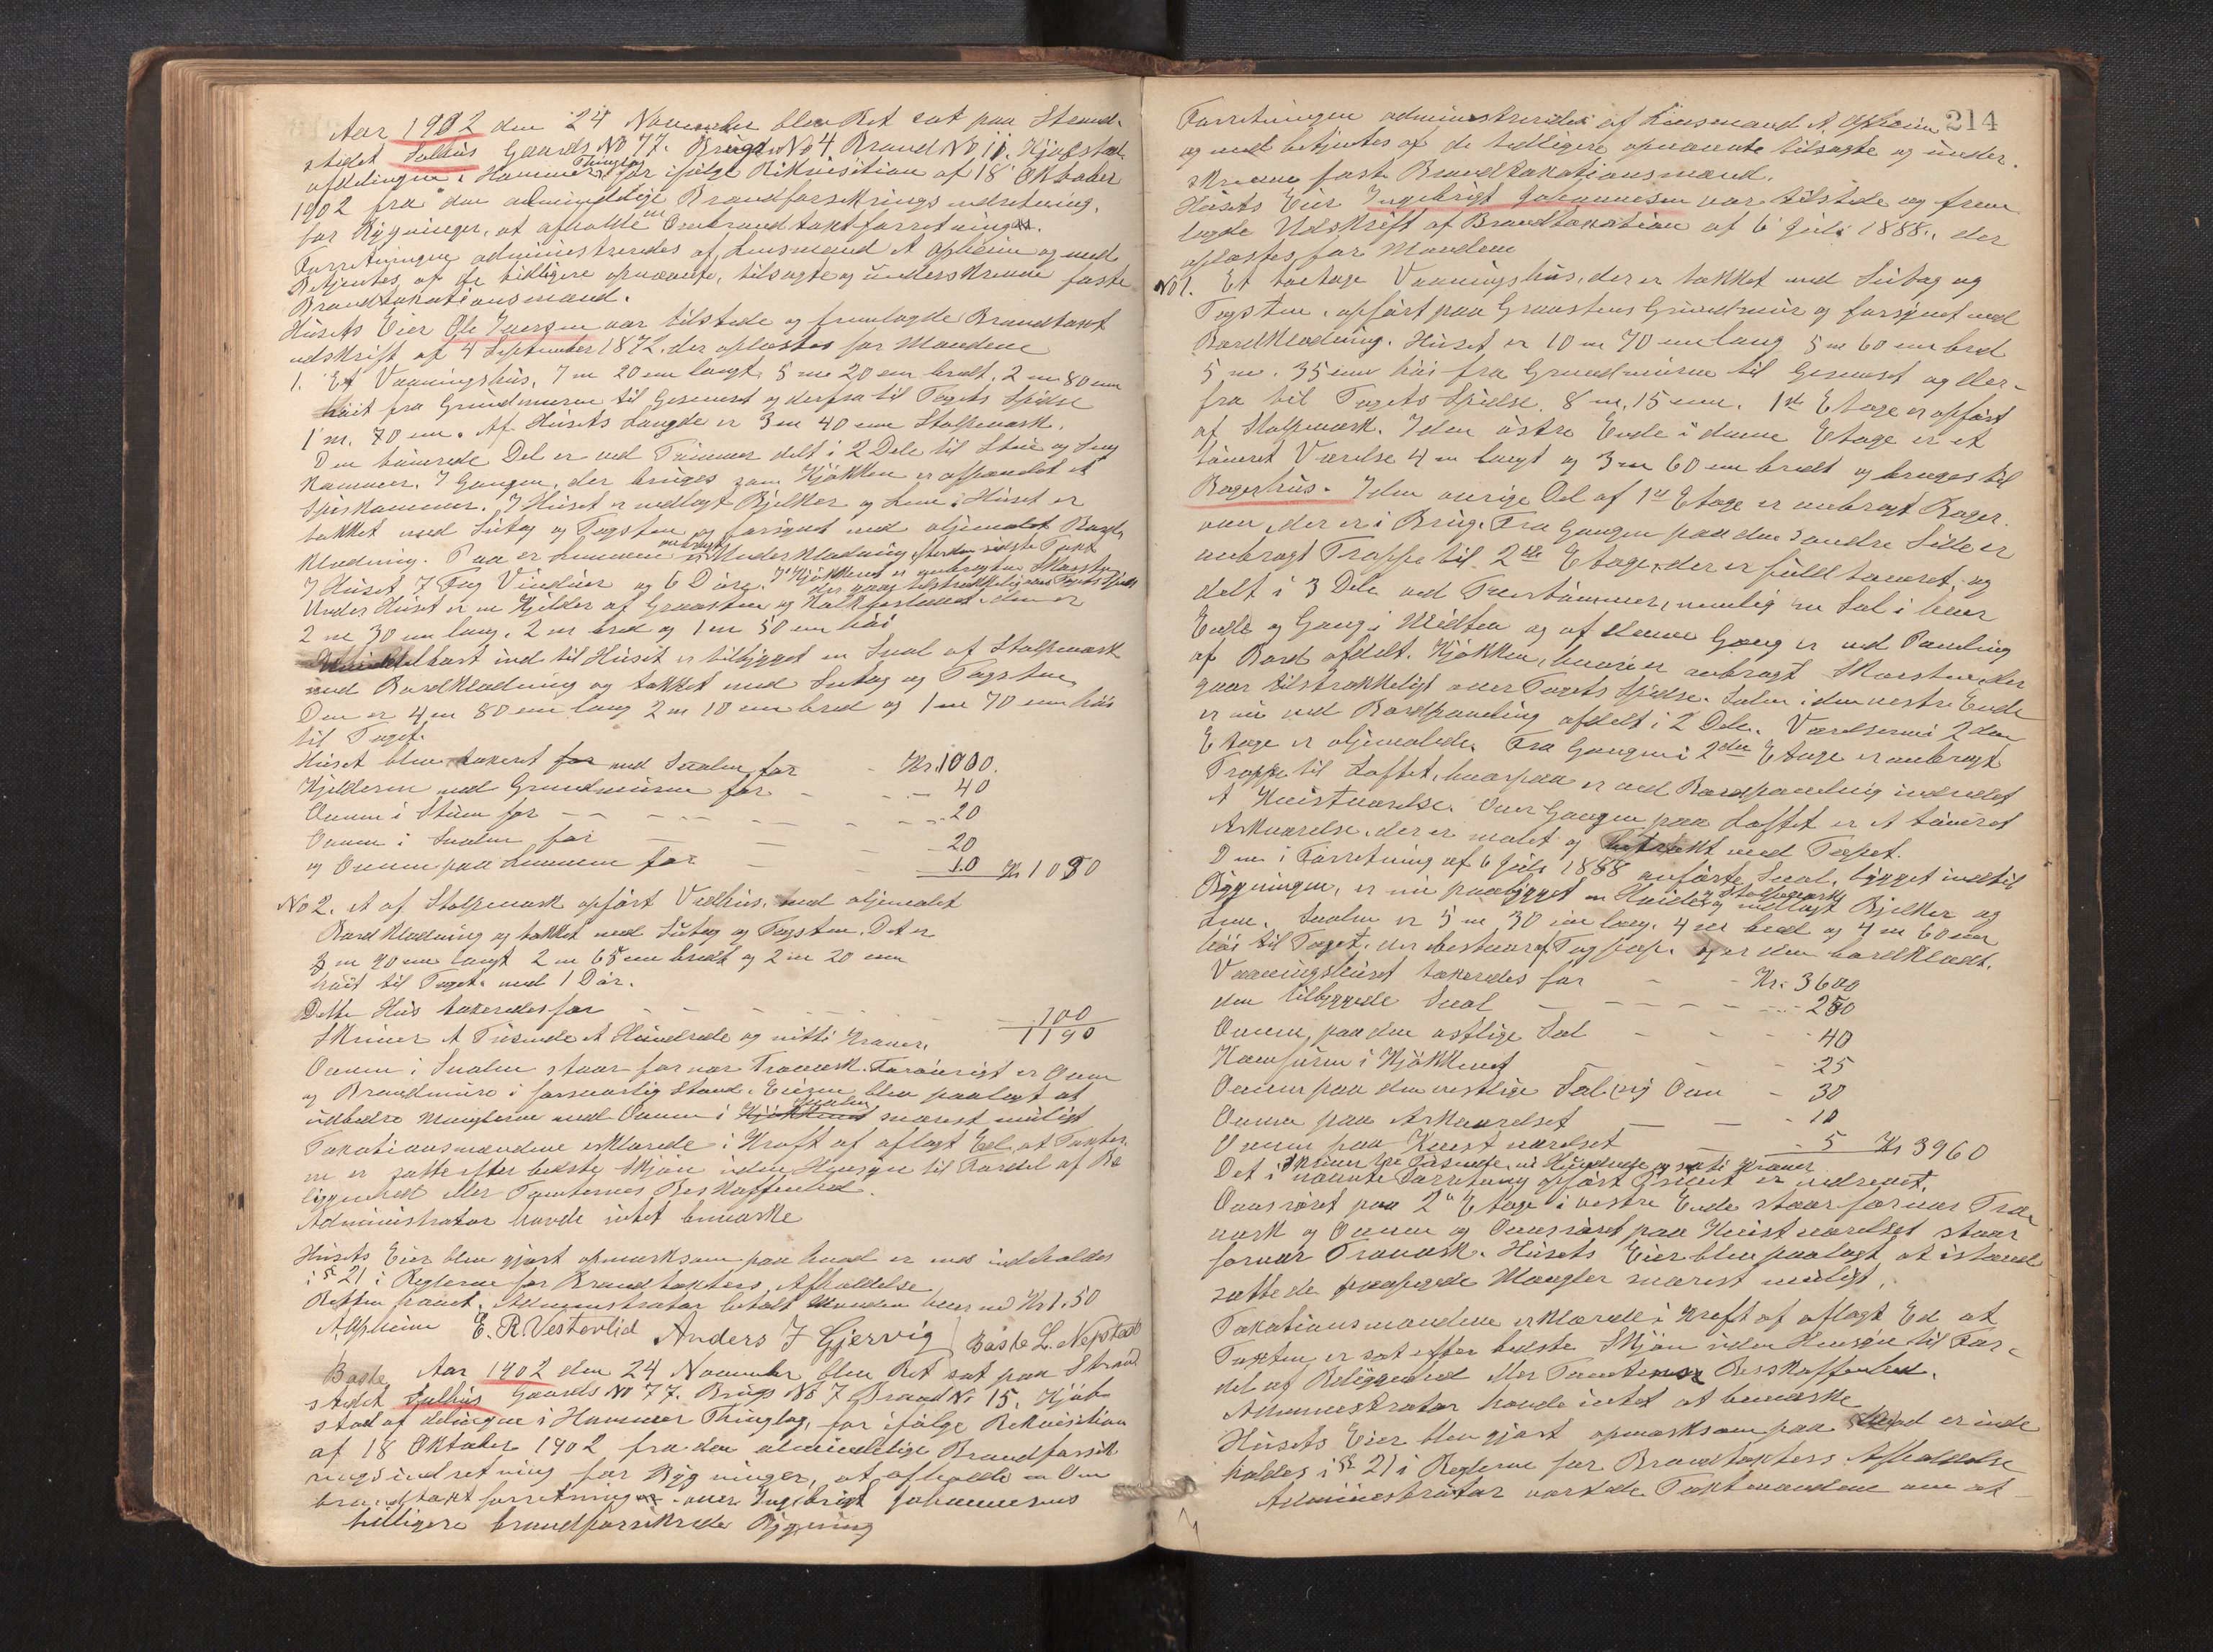 Aar 1902 den 24 November blev Ret sat paa Strand-
stedet Salhus Gaards No 77. Brugs No 4 Brand No 11. Kjøbstad
afdelingen i Hammer Thinglag for ifølge Rikvisition af 18 Oktober
1902 fra den almindelige Brandforsikrings indretning,
for Bygninger, at afholde en Ombrandtaxtforretning.
Forretningen administreredes af Lensmand A Opheim og med
Betjentes af de tidligere opnævnte, tilsagte og underskrevne faste
Brandtaxationsmænd.
Husets Eier Ole Iversen var tilstede og fremlagde Brandtaxt
udskrift af 4 September 1872, der oplæstes for Mændene
1. Et Vaaningshus, 7 m 20 cm langt, 5 m 20 cm bredt, 2 m 80 cm
høit fra Grundmuren til Gesimset og derfra til Tagets Spidse
1 m. 70 cm. Af Husets Længde er 3 m 40 cm Stolpeværk.
Den tømrede Del er ved Tømmer delt i 2 Dele til Stue og Seng
kammer. I Gangen, der bruges som Kjøkken er afpanelet et
Spiskammer. I Huset er indlagt Bjelker og Lem. Huset er
tækket med Sutag og Tagsten og forsynet med oljemalet Bord-
klædning. Paa Lemmen er anbragt Underklædning efter den sidste Taxt
I Huset 7 Fag Vinduer og 6 Døre. I Kjøkkenet er anbragt en Skorsten
der gaar tilstrækkelig over Tagets Spidse
Under Huset er en Kjelder af Graasten og Kalkpudset. den er
2 m 30 cm lang, 2 m bred og 1 m 50 cm høi
hart ind til Huset er tilbygget en Sval af Stolpeværk
med Bordklædning og tækket med Sutag og Tagsten
Den er 4 m 80 cm lang 2 m 10 cm bred og 1 m 70 cm høi
til Taget.
Huset blev taxeret for med Svalen for - Kr. 1000.
Kjelderen med Grundmuren for - - - 40
Ovnen i Stuen for - - - 20
Ovnen i Svalen for - - - 20
og Ovnen paa Lemmen for - - 10 Kr 1090
No 2. et af Stolpeværk opført Vedhus, med oljemalet
Bordklædning og tækket med Sutag og Tagsten. Det er
3 m 90 cm langt 2 m 65 cm bredt og 2 m 20 cm
høit til Taget. med 1 Dør.
Dette Hus taxeredes for - - - 100
Skriver et Tusende et Hundrede og nitti Kroner. 1190
Ovnen i Svalen staar for nær Træværk. Forøvrigt er Ovne
og Brandmure i forsvarlig Stand. Eieren blev paalagt at
udbedre Manglerne med Ovnen i Kjøkkenet Svalen snarest muligt
Taxationsmændene erklærede i Kraft af aflagt Eed, at Taxter
ne er satte efter bedste Skjøn uden Hensyn til Fordel af Be
liggenhed eller Tomternes Beskaffenhed.
Administrator havde intet bemærke
Husets Eier blev gjort opmærksom paa hvad er indeholdes
i § 21 i Reglerne for Brandtaxters Afholdelse
Retten hævet. Administrator betalt Mændene hver med Kr 1.50
A Opheim E. R Vestevlid Anders J Gjervig Baste L. Nepstad
Baste Aar 1902 den 24 November blev Ret sat paa Strand
stedet Salhus Gaards No 77. Brugs No 7 Brand No 15. Kjøb-
stadafdelingen i Hammer Thinglag, for ifølge Rekvisition
af 18 Oktober 1902 fra den almindelige Brandforsik
ringsindretning for Bygninger, at afholde en Om
brandtaxtforretning over Ingebrigt Johannesens
tidligere brandforsikrede Bygning
214
Forretningen administreredes af Lensmand A. Opheim
og med betjentes af de tidligere opnævnte tilsagte og under-
skrevne faste Brandtaxationsmænd.
Husets Eier Ingebrigt Johannesen var tilstede og frem
lagde Udskrift af Brandtaxation af 6 Juli 1888., der
oplæstes for Mændene
No 1. Et toetage Vaaningshus, der er tækket med Sutag og
Tagsten, opført paa Graastens Grundmur og forsynet med
Bordklædning. Huset er 10 m 70 cm lang 5 m 60 cm bred
5 m. 35 cm høi fra Grundmuren til Gesimset og der-
fra til Tagets Spidse. 8 m, 15 cm. 1ste Etage er opført
af Stolpeværk. I den østre Ende i denne Etage er et
tømret Værelse 4 m langt og 3 m 60 cm bredt og bruges til
Bagerhus. I den øvrige Del af 1ste Etage er anbragt Bager-
ovn, der er i Brug. Fra Gangen paa den søndre Side er
anbragt Trappe til 2den Etage, der er fuldt tømret, og
delt i 3 Dele ved Tværtømmer, nemlig en Sal i hver
Ende og Gang i Midten og af denne Gang er ved Paneling
af Bord afdelt Kjøkken, hvori er anbragt Skorsten, der
gaar tilstrækkeligt over Tagets Spidse. Salen i den vestre Ende
er nu ved Bordpaneling afdelt i 2 Dele. Værelserne i 2den
Etage er oljemalede. Fra Gangen i 2den Etage er anbragt
Trappe til Loftet, hvorpaa er ved Bordpaneling indredet
et Kvistværelse. Over Gangen paa Loftet er et tømret
Arkværelse, der er malet og betrækt med Tapet.
Den i Forretning af 6 Juli 1888 anførte Sval, bygget indtil
Bygningen, er nu paabygget en Høide af Stolpeværk og indlagt Bjelker og
Lem. Svalen er 5 m 30 cm lang, 4 m bred og 4 m 60 cm
høi til Taget. der bestaar af Tagpap. og er den bordklædt.
Vaaningshuset taxeredes for - - Kr. 3600
den tilbyggede Sval - - - 250
Ovnen paa den østlige Sal - - - 40
Komfuren i Kjøkkenet - - 25
Ovnen paa den vestlige Sal (ny Ovn - 30
Ovnen paa Arkværelset - - 10
Ovnen paa Kvistværelset - 5 Kr 3960
skriver tre Tusende, ni Hundrede og seksti Kroner
Det i nævnte Forretning opført er nedrevet.
Ovnsrøret paa 2den Etage i vestre Ende staar for nær Træ
værk og Ovnen og Ovnsrøret paa Kvistværelset staar
for nær Træværk. Husets Eier blev paalagt at istand
sætte de paapegede Mangler snarest muligt.
Taxationsmændene erklærede i Kraft af aflagt Ed at
Taxten er sat efter bedste Skjøn uden Hensyn til For-
del af Beliggenhed eller Tomternes Beskaffenhed.
Administrator havde intet at bemærke
Husets Eier blev gjort opmærksom paa hvad er inde
holdes i § 21 i Reglerne for Brandtaxters Afholdelse
Administrator varslede Taxtmændene om at